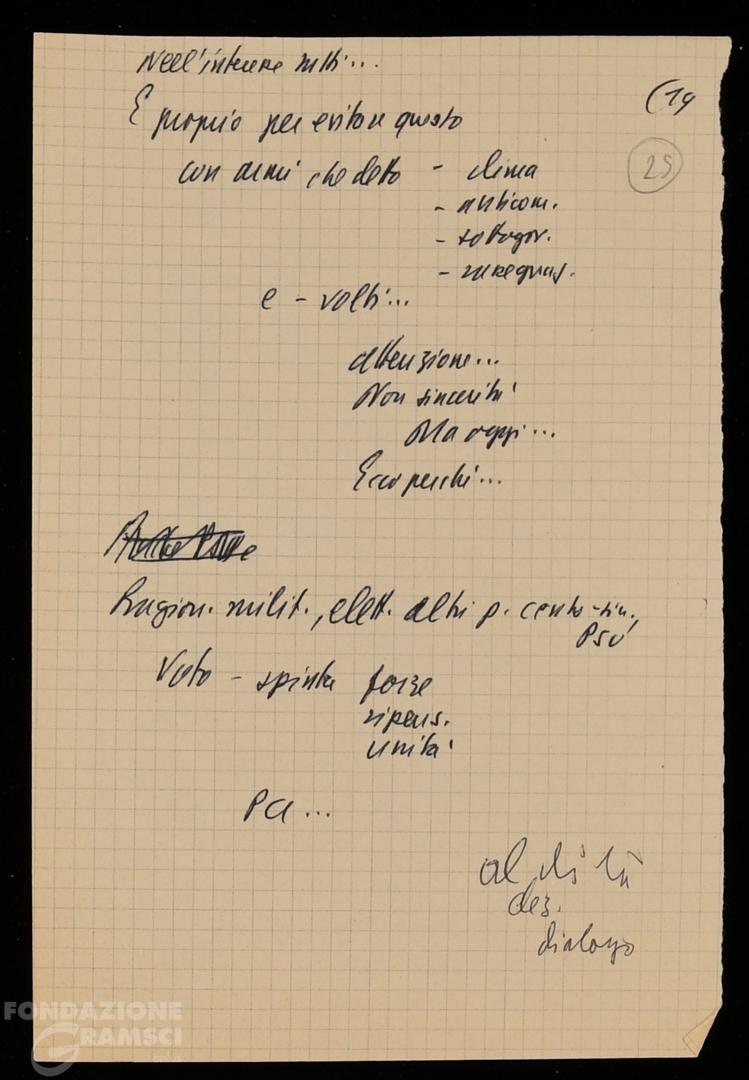 Nell'interesse tutti...
(19
E proprio per evitare questo
25
con armi che detto - clima
- anticom.
- sottogov.
- rassegnaz.
e - volti...
attenzione...
Non sincerità
Ma oggi...
Ecco perché...
Ragion. milit., elett. altri p. centro-sin.,
PSU
Voto - spinta forze
ripens.
unità
PCI...
al di là
des.
dialogo
FONDAZIONE
GRAMSCI